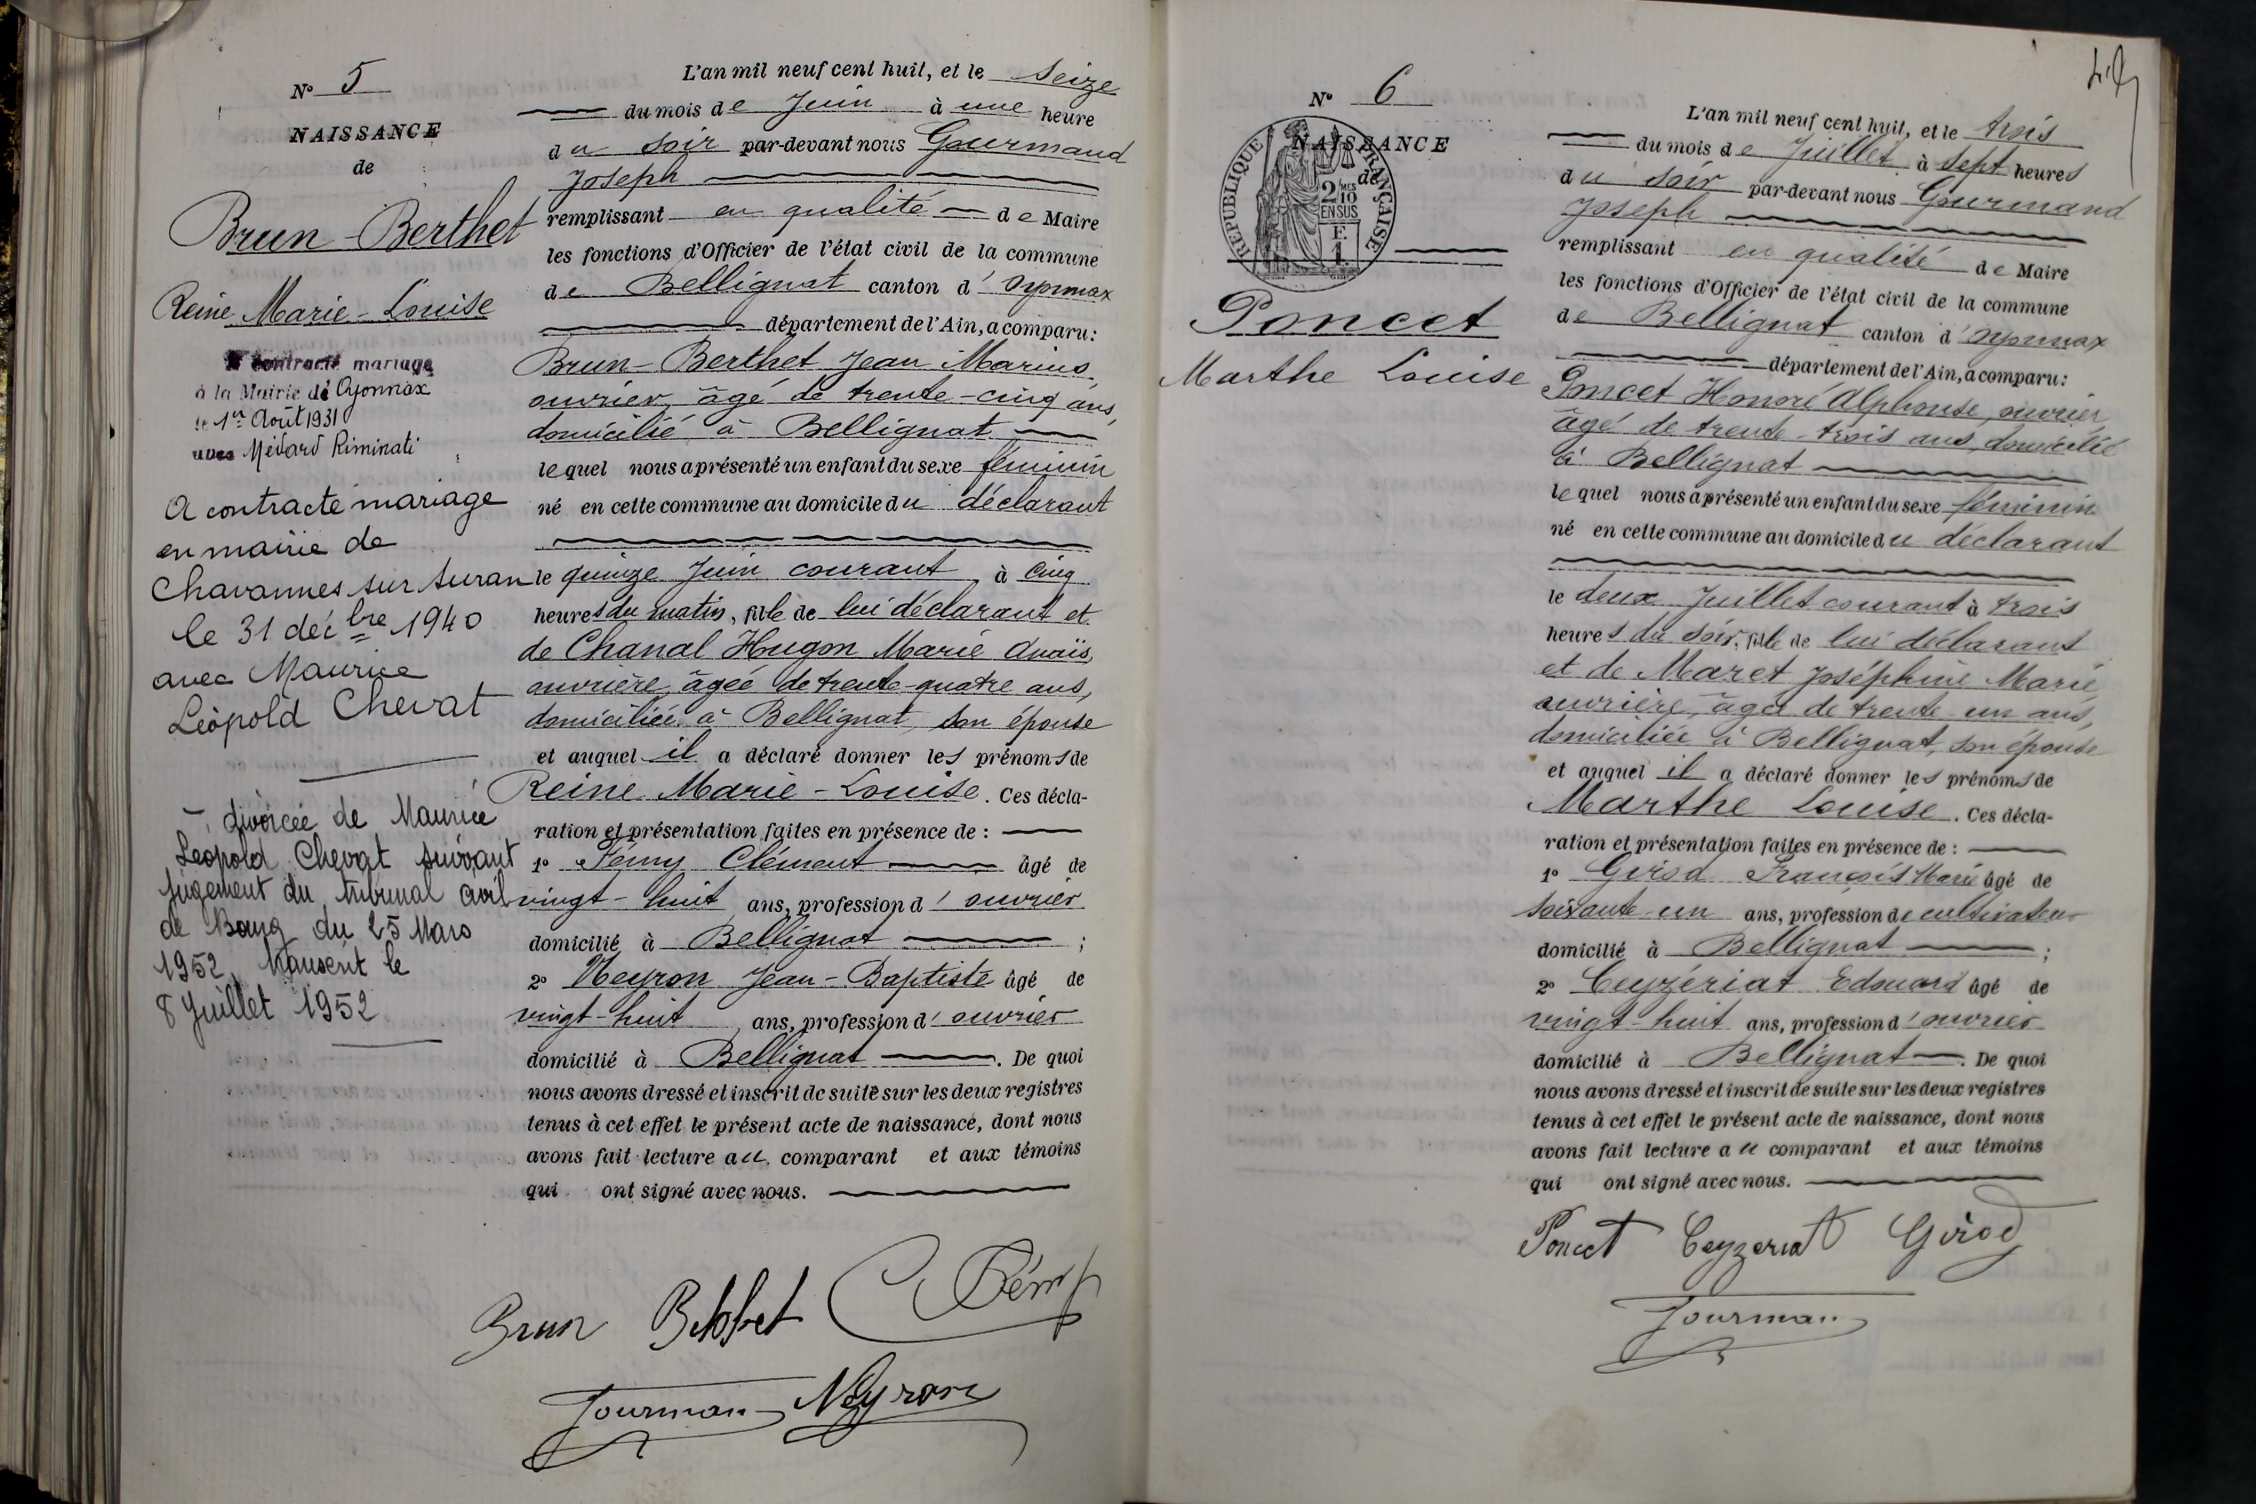 N° 5
NAISSANCE
de
Brun-Berthet
Reine Marie-Louise
A contracté mariage
à la Mairie de Oyonnax
le 1er Août 1931
avec Médard Riminati
A contracté mariage
en mairie de
Chavannes sur Suran
le 31 décbre 1940
avec Maurice
Léopold Chevat
- divorcée de Maurice
Léopold Chevat suivant
jugement du tribunal civil
de Bourg du 25 Mars
1952 transcrit le
8 Juillet 1952
L'an mil neuf cent huit, et le seize
du mois de Juin à une heure
du soir par-devant nous Gourmand
Joseph
remplissant en qualité de Maire
les fonctions d'Officier de l'état civil de la commune
de Bellignat canton d'Oyonnax
département de l'Ain, a comparu:
Brun-Berthet Jean Marius,
ouvrier, âgé de trente-cinq ans,
domicilié à Bellignat
lequel nous a présenté un enfant du sexe féminin
né en cette commune au domicile du déclarant
le quinze Juin courant à cinq
heures du matin, fille de lui déclarant et
de Chanal Hugon Marie Anaïs,
ouvrière, âgée de trente-quatre ans,
domiciliée à Bellignat, son épouse
et auquel il a déclaré donner les prénoms de
Reine Marie-Louise. Ces décla-
ration et présentation faites en présence de :
1° Fémy Clément âgé de
vingt-huit ans, profession d'ouvrier
domicilié à Bellignat ;
2° Neyron Jean-Baptiste âgé de
vingt-huit ans, profession d'ouvrier
domicilié à Bellignat. De quoi
nous avons dressé et inscrit de suite sur les deux registres
tenus à cet effet le présent acte de naissance, dont nous
avons fait lecture au comparant et aux témoins
qui ont signé avec nous.
Brun Berthet
Gourman Neyron
N° 6
NAISSANCE
de
RÉPUBLIQUE FRANÇAISE
2 MES
10
EN SUS
F.
1.
Poncet
Marthe Louise
L'an mil neuf cent huit, et le trois
du mois de Juillet à sept heures
du soir par-devant nous Gourmand
Joseph
remplissant en qualité de Maire
les fonctions d'Officier de l'état civil de la commune
de Bellignat canton d'Oyonnax
département de l'Ain, a comparu:
Poncet Honoré Alphonse, ouvrier,
âgé de trente-trois ans, domicilié
à Bellignat
lequel nous a présenté un enfant du sexe féminin
né en cette commune au domicile du déclarant
le deux Juillet courant à trois
heures du soir, fille de lui déclarant
et de Maret Joséphine Marie,
ouvrière, âgée de trente un ans,
domiciliée à Bellignat, son épouse
et auquel il a déclaré donner les prénoms de
Marthe Louise. Ces décla-
ration et présentation faites en présence de :
1° Girod François Marie âgé de
soixante-un ans, profession de cultivateur
domicilié à Bellignat ;
2° Ceyzériat Edouard âgé de
vingt-huit ans, profession d'ouvrier
domicilié à Bellignat. De quoi
nous avons dressé et inscrit de suite sur les deux registres
tenus à cet effet le présent acte de naissance, dont nous
avons fait lecture au comparant et aux témoins
qui ont signé avec nous.
Poncet Ceyzeriat Girod
Gourman